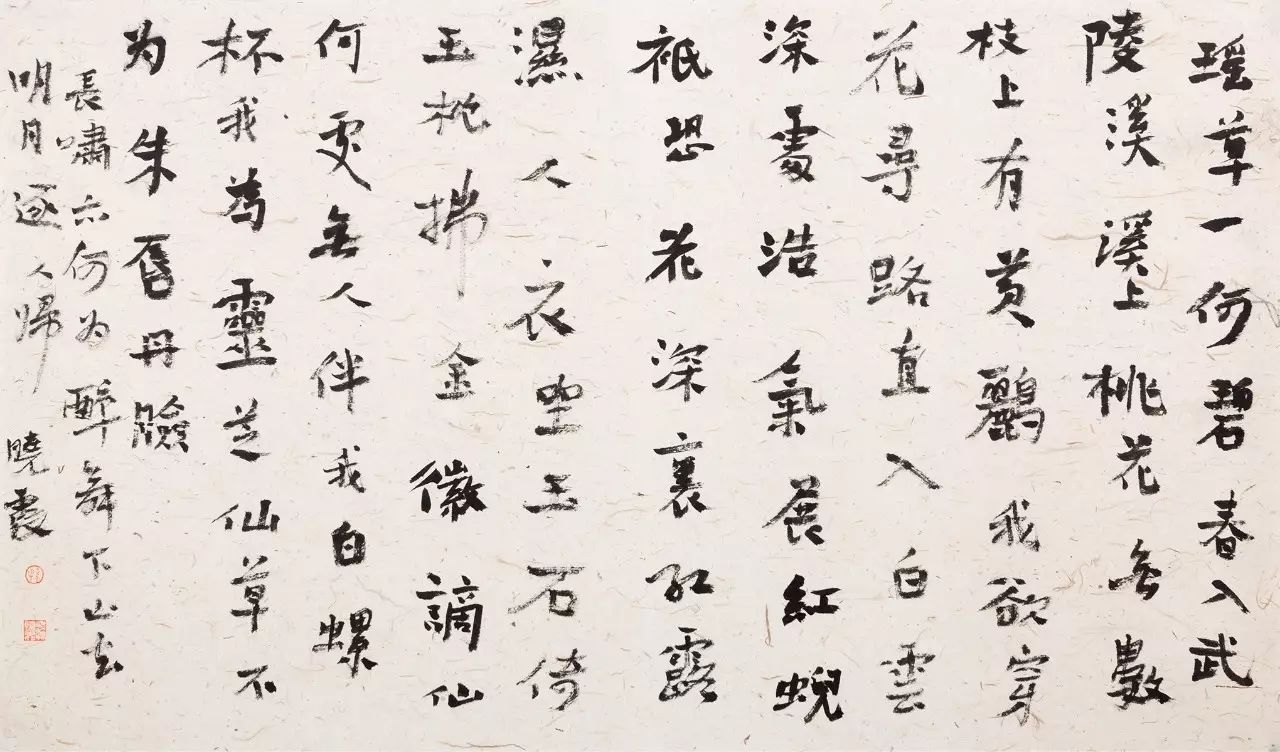 瑶草一何碧春入武
陵溪溪上桃花無數
枝上有黄鸝我欲穿
花尋路直入白雲
深處浩氣展紅蜺
祇恐花深裏红露
濕人衣坐玉石倚
玉枕拂金徽謫仙
何處無人伴我白螺
杯我為靈芝仙草不
为朱唇丹臉
長嘯亦何为醉舞下山去
明月逐人歸 曉霞